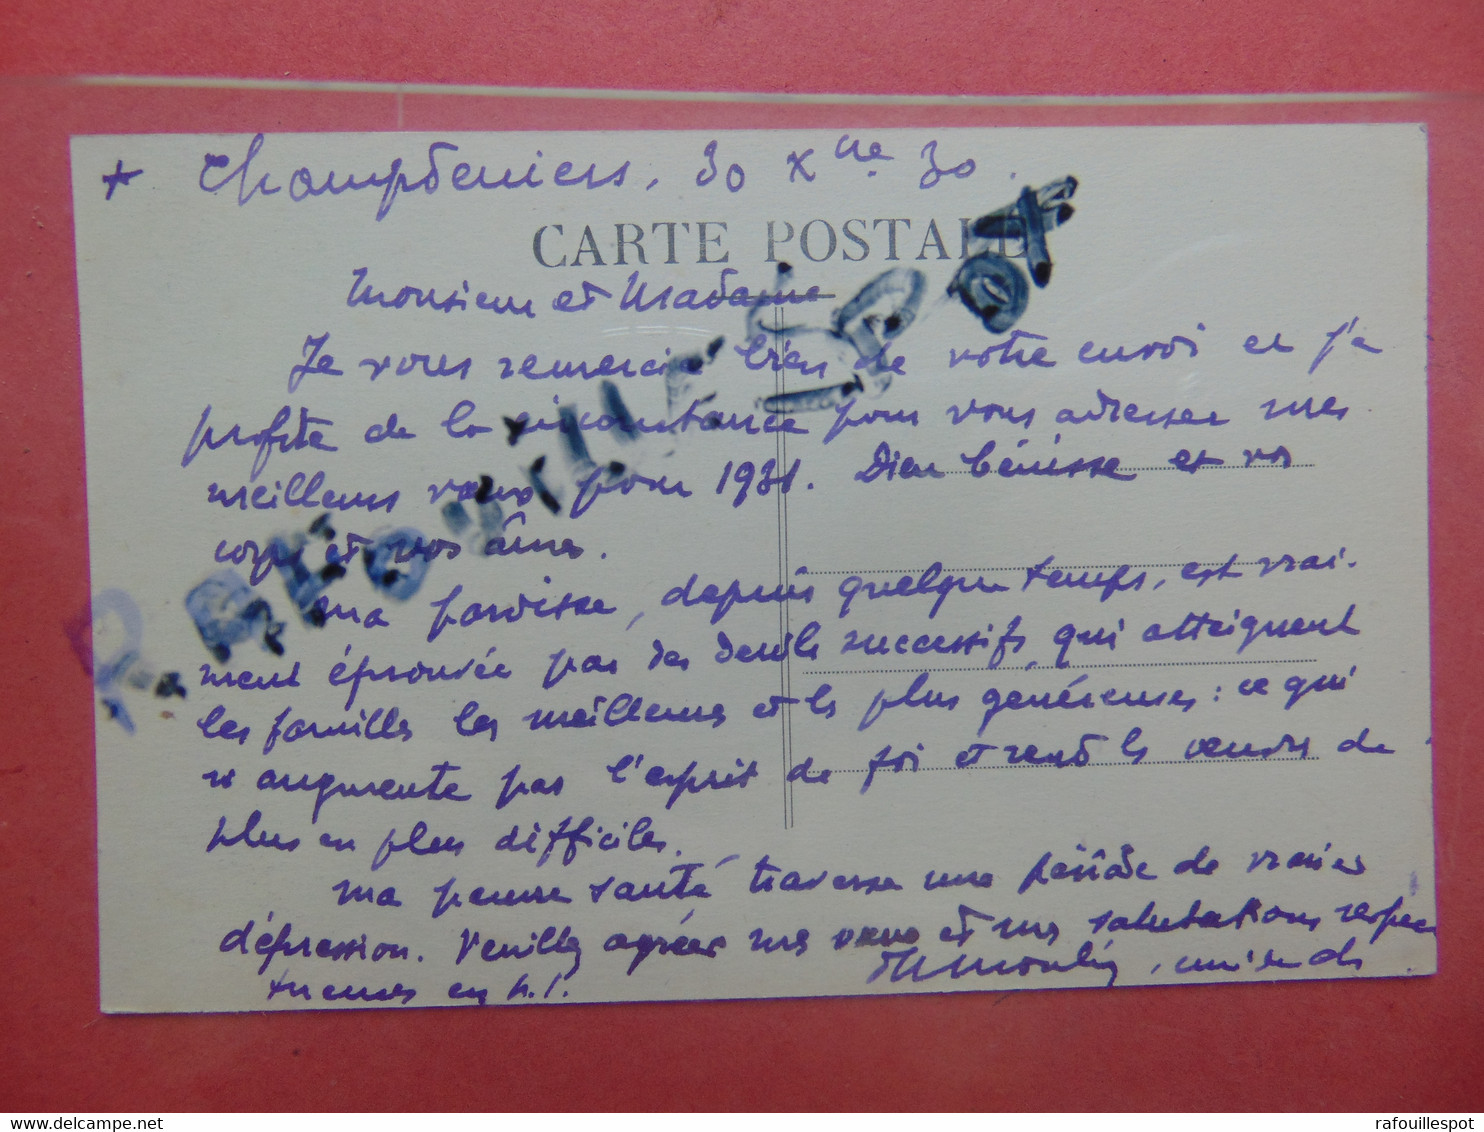 + Champdeniers, 30 Xbre 30.
CARTE POSTALE
Monsieur et Madame
Je vous remercie bien de votre envoi et j'en
profite de la circonstance pour vous adresser mes
meilleurs vœux pour 1931. Dieu bénisse et vos
corps et vos âmes.
Ma paroisse, depuis quelque temps, est vrai-
ment éprouvée par des deuils successifs, qui atteignent
les familles les meilleures et les plus généreuses : ce qui
n'augmente pas l'esprit de foi et rend les œuvres de
plus en plus difficiles.
Ma pauvre santé traverse une période de vraies
dépression. Veuillez agréer mes vœux et mes salutations respec
tueuses en N.S.
H Moulin,
RAFOUILLESPOT
rafouillespot
www.delcampe.net